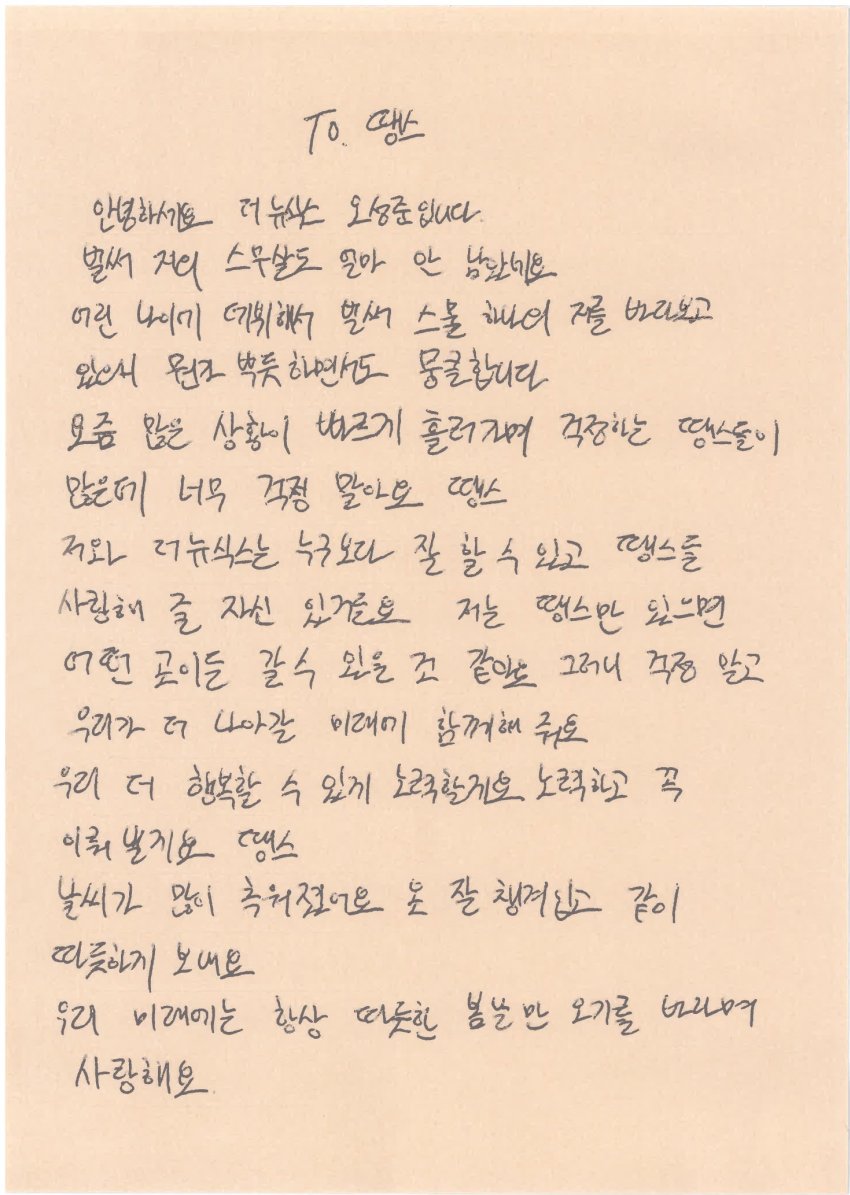 To. 땡스
안녕하세요 더뉴식스 오성준입니다.
벌써 저의 스무살도 얼마 안 남았네요
어린 나이에 데뷔해서 벌써 스물 하나의 저를 바라보고
있으니 뭔가 뿌듯하면서도 뭉클합니다
요즘 많은 상황이 빠르게 흘러가며 걱정하는 땡스들이
많은데 너무 걱정 말아요 땡스
저와 더뉴식스는 누구보다 잘 할 수 있고 땡스들
사랑해 줄 자신 있거든요 저는 땡스만 있으면
어떤 곳이든 갈 수 있을 것 같아요 그러니 걱정 말고
우리가 더 나아갈 미래에 함께해 줘요
우리 더 행복할 수 있게 노력할게요 노력하고 꼭
이뤄 낼게요 땡스
날씨가 많이 추워졌어요 옷 잘 챙겨입고 같이
따뜻하게 보내요
우리 미래에는 항상 따듯한 봄날만 오기를 바라며
사랑해요